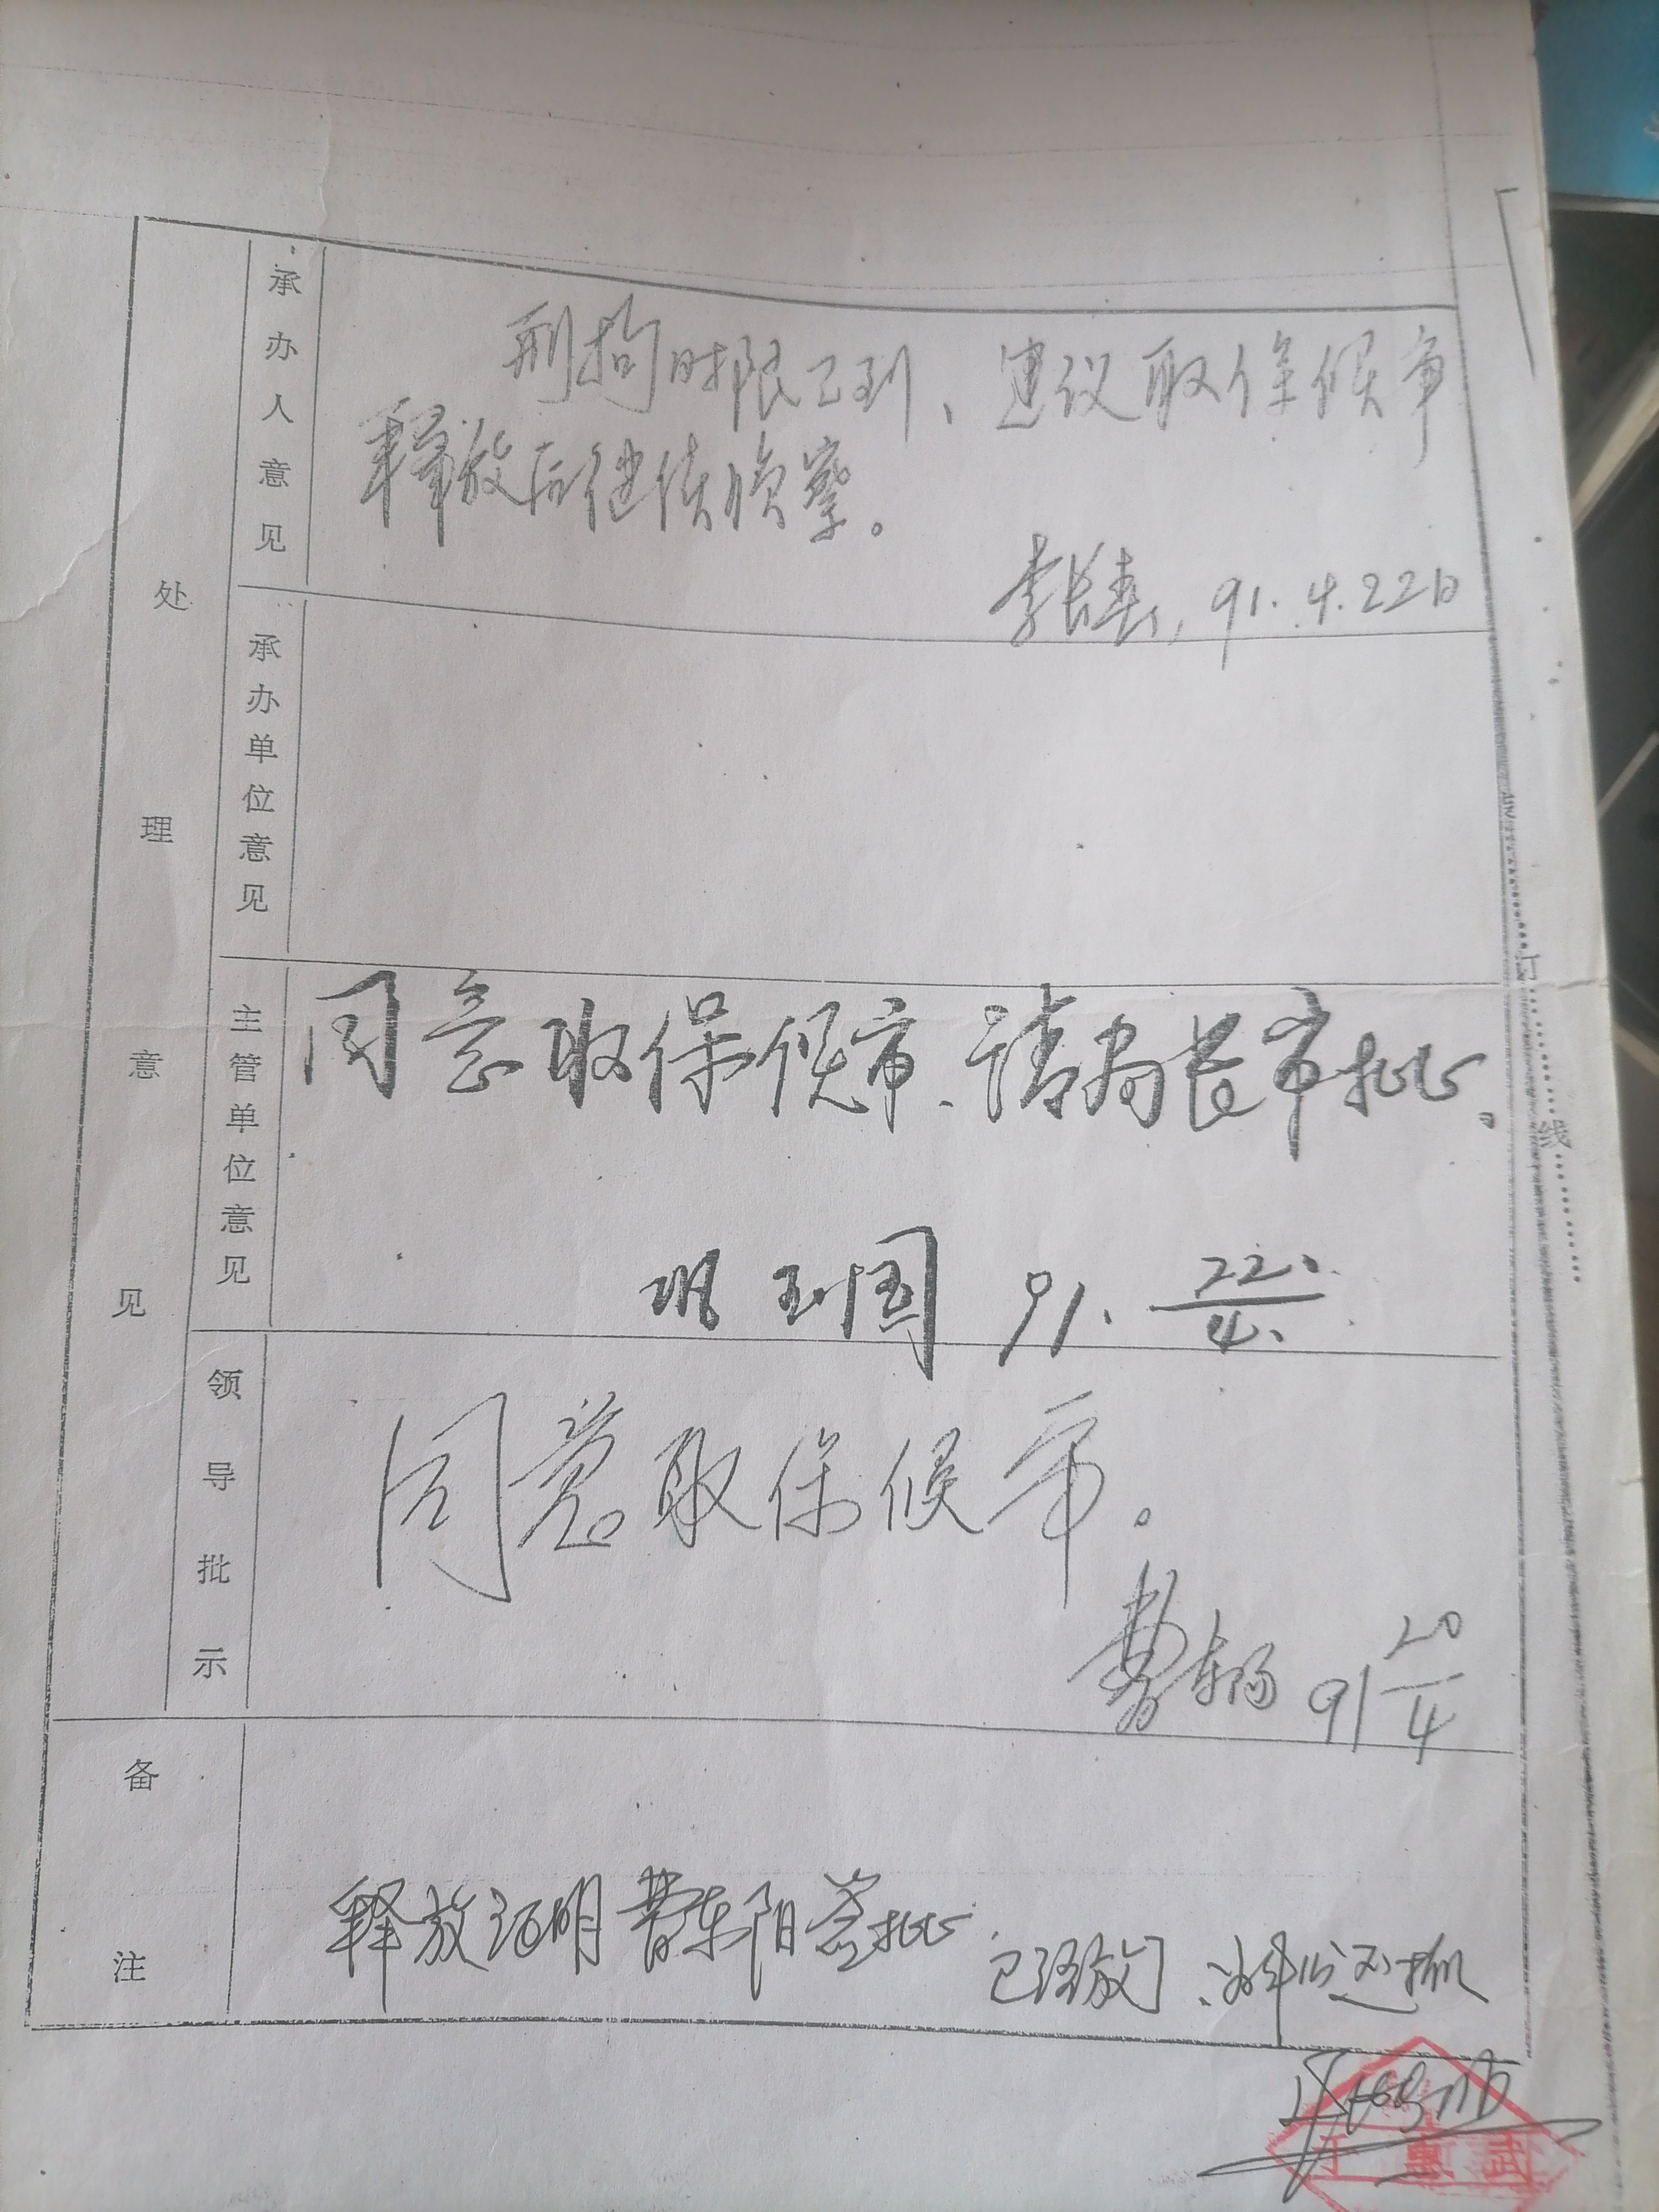 处理意见
承办人意见
刑拘时限已到、建议取保候审
释放后继续侦察。
李长春, 91.4.22日
承办单位意见
主管单位意见
同意取保候审、请局长审批、
国 91. 22/4.
领导批示
同意取保候审。
曹东阳 91 20/4
备注
释放证明曹东阳签批
已经放了、
订
线